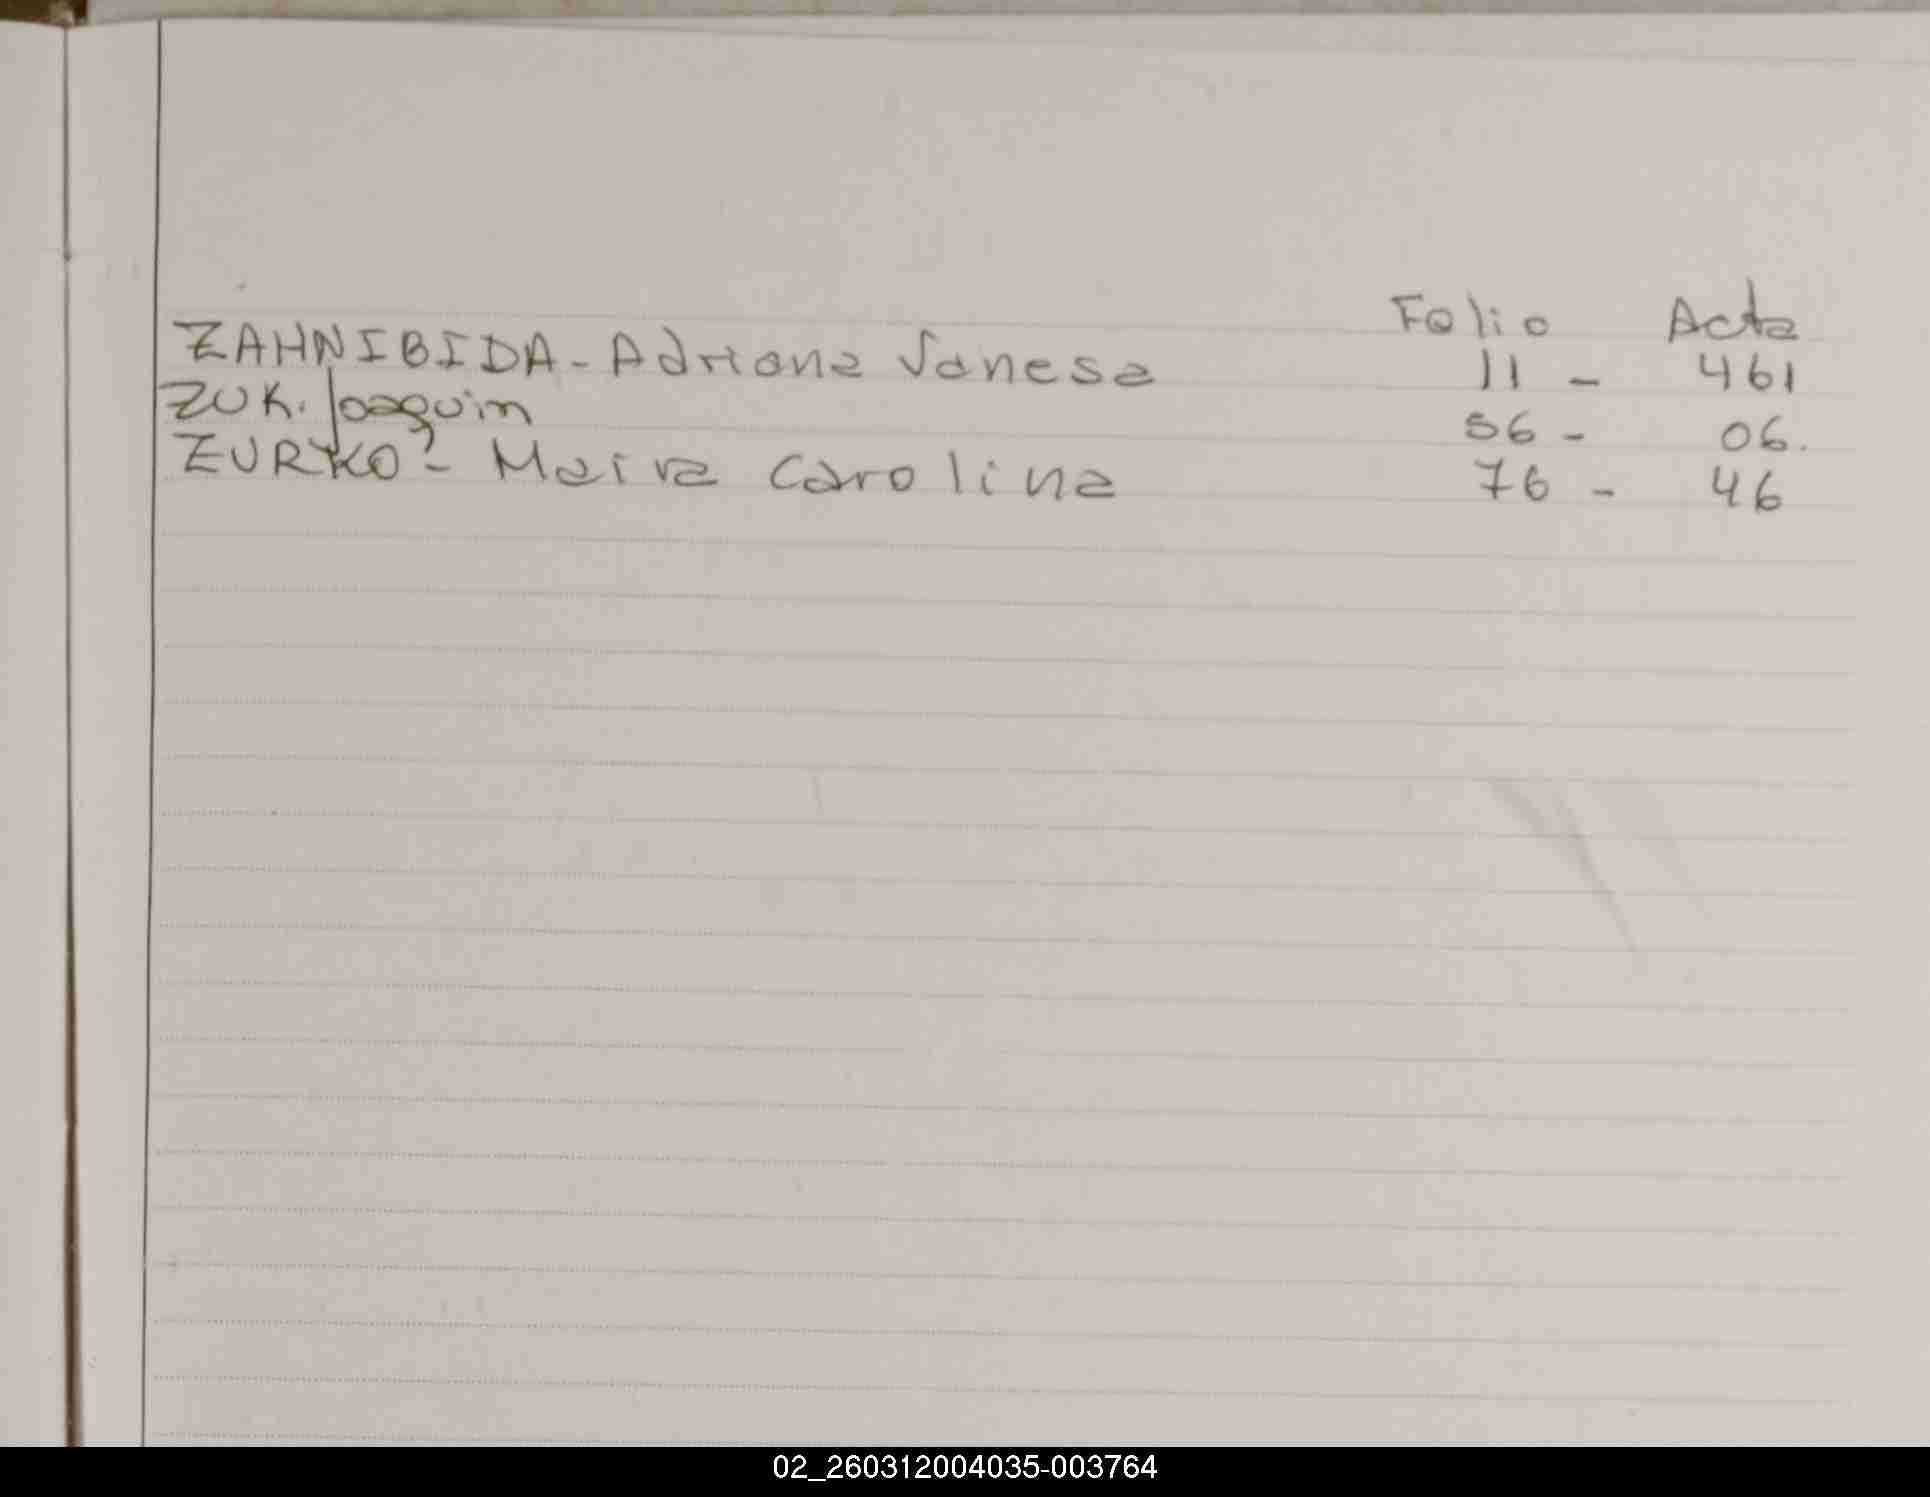 Folio Acta
ZAHNIBIDA - Adriana Vanesa 11 - 461
ZUK. Joaquin 56 - 06.
ZURKO - Maira Carolina 76 - 46
02_260312004035-003764